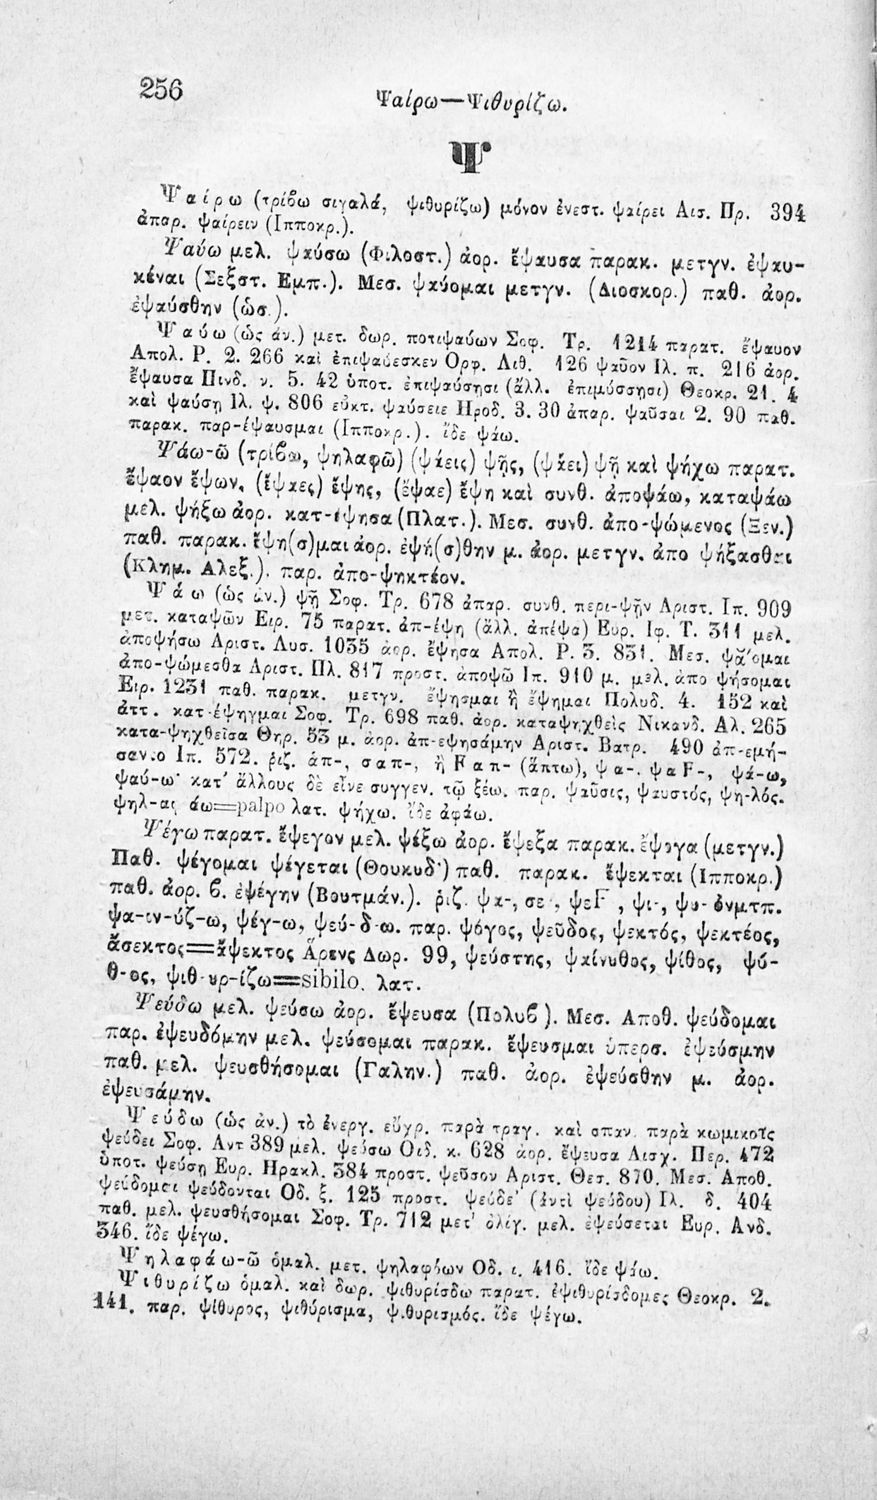 256
Ψαίρω—Ψιθυρίζω.
Ψ
Ψαίρω (τρίβω σιγαλά, ψιθυρίζω) μόνον ἐνεστ. ψαίρει Αισ. Πρ. 394
ἀπαρ. ψαίρειν (Ιπποκρ.).
Ψαύω μελ. ψαύσω (Φιλοστ.) ἀορ. ἔψαυσα παρακ. μετγν. ἐψαυ-
κέναι (Σεξστ. Εμπ.). Μεσ. ψαύομαι μετγν. (Διοσκορ.) παθ. ἀορ.
ἐψαύσθην (ὡσ.).
Ψαύω (ὡς ἀν.) μετ. δωρ. ποτιψαύων Σοφ. Τρ. 1214 παρατ. ἔψαυον
Απολ. Ρ. 2. 266 καὶ ἐπιψαύεσκεν Ορφ. Λιθ. 126 ψαῦον Ιλ. π. 216 ἀορ.
ἔψαυσα Πινδ. ν. 5. 42 ὑποτ. ἐπιψαύσησι (ἄλλ. ἐπιμύσσησι) Θεοκρ. 21. 4
καὶ ψαύσῃ Ιλ. ψ. 806 εὐκτ. ψαύσειε Ηροδ. 3. 30 ἀπαρ. ψαῦσαι 2. 90 παθ.
παρακ. παρ-έψαυσμαι (Ιπποκρ.). ἴδε ψάω.
Ψάω-ῶ (τρίβω, ψηλαφῶ) (ψάεις) ψῇς, (ψάει) ψῇ καὶ ψήχω παρατ.
ἔψαον ἔψων, (ἔψαες) ἔψης, (ἔψαε) ἔψη καὶ συνθ. ἀποψάω, καταψάω
μελ. ψήξω ἀορ. κατ-έψησα (Πλατ.). Μεσ. συνθ. ἀπο-ψώμενος (Ξεν.)
παθ. παρακ. ἔψη(σ)μαι ἀορ. ἐψή(σ)θην μ. ἀορ. μετγν. ἀπο ψήξασθαι
(Κλημ. Αλεξ.). παρ. ἀπο-ψηκτέον.
Ψάω (ὡς ἀν.) ψῇ Σοφ. Τρ. 678 ἀπαρ. συνθ. περι-ψῆν Αριστ. Ιπ. 909
μετ. καταψῶν Ειρ. 75 παρατ. ἀπ-έψη (ἄλλ. ἀπέψα) Ευρ. Ιφ. Τ. 311 μελ.
ἀποψήσω Αριστ. Λυσ. 1035 ἀορ. ἔψησα Απολ. Ρ. 3. 831. Μεσ. ψά'ομαι
ἀπο-ψώμεσθα Αριστ. Πλ. 817 προστ. ἀποψῶ Ιπ. 910 μ. μελ. ἀπο ψήσομαι
Ειρ. 1231 παθ. παρακ. μετγν. ἔψησμαι ἢ ἔψημαι Πολυδ. 4. 152 καὶ
ἀττ. κατ-έψηγμαι Σοφ. Τρ. 698 παθ. ἀορ. καταψηχθεὶς Νικανδ. Αλ. 265
κατα-ψηχθεῖσα Θηρ. 53 μ. ἀορ. ἀπ-εψησάμην Αριστ. Βατρ. 490 ἀπ-εμή-
σαντο Ιπ. 572. ῥιζ. ἀπ-, σαπ-, ἢ Ϝαπ- (ἅπτω), ψα-, ψαϜ-, ψά-ω,
ψαύ-ω· κατ' ἄλλους δὲ εἶνε συγγεν. τῷ ξέω. παρ. ψαῦσις, ψαυστός, ψη-λός.
ψηλ-αφ άω=palpo λατ. ψήχω. ἴδε ἀφάω.
Ψέγω παρατ. ἔψεγον μελ. ψέξω ἀορ. ἔψεξα παρακ. ἔψογα (μετγν.)
Παθ. ψέγομαι ψέγεται (Θουκυδ·) παθ. παρακ. ἔψεκται (Ιπποκρ.)
παθ. ἀορ. β. ἐψέγην (Βουτμάν.). ῥιζ. ψα-, σε-, ψεϜ-, ψι-, ψυ- ὀνμτπ.
ψα-ιν-ύζ-ω, ψέγ-ω, ψεύ-δ-ω. παρ. ψόγος, ψεῦδος, ψεκτός, ψεκτέος,
ἄσεκτος=ἄψεκτος Δωρ. 99, ψεύστης, ψαίνυθος, ψίθος, ψύ-
θ-ος, ψιθ-υρ-ίζω=sibilo. λατ.
Ψεύδω μελ. ψεύσω ἀορ. ἔψευσα (Πολυβ). Μεσ. Αποθ. ψεύδομαι
παρ. ἐψευδόμην μελ. ψεύσομαι παρακ. ἔψευσμαι ὑπερσ. ἐψεύσμην
παθ. μελ. ψευσθήσομαι (Γαλην.) παθ. ἀορ. ἐψεύσθην μ. ἀορ.
ἐψευσάμην.
Ψεύδω (ὡς ἀν.) τὸ ἐνεργ. εὔχρ. παρὰ τραγ. καὶ σπαν. παρὰ κωμικοῖς
ψεύδει Σοφ. Αντ 389 μελ. ψεύσω Οιδ. κ. 628 ἀορ. ἔψευσα Αισχ. Περ. 472
ὑποτ. ψεύσῃ Ευρ. Ηρακλ. 384 προστ. ψεῦσον Αριστ. Θεσ. 870. Μεσ. Αποθ.
ψεύδομαι ψεύδονται Οδ. ξ. 125 προστ. ψεύδε' (ἀντὶ ψεύδου) Ιλ. δ. 404
παθ. μελ. ψευσθήσομαι Σοφ. Τρ. 712 μετ' ὀλίγ. μελ. ἐψεύσεται Ευρ. Ανδ.
346. ἴδε ψέγω.
Ψηλαφάω-ῶ ὁμαλ. μετ. ψηλαφόων Οδ. ι. 416. ἴδε ψάω.
Ψιθυρίζω ὁμαλ. καὶ δωρ. ψιθυρίσδω παρατ. ἐψιθυρίσδομες Θεοκρ. 2.
141. παρ. ψίθυρος, ψιθύρισμα, ψιθυρισμός. ἴδε ψέγω.